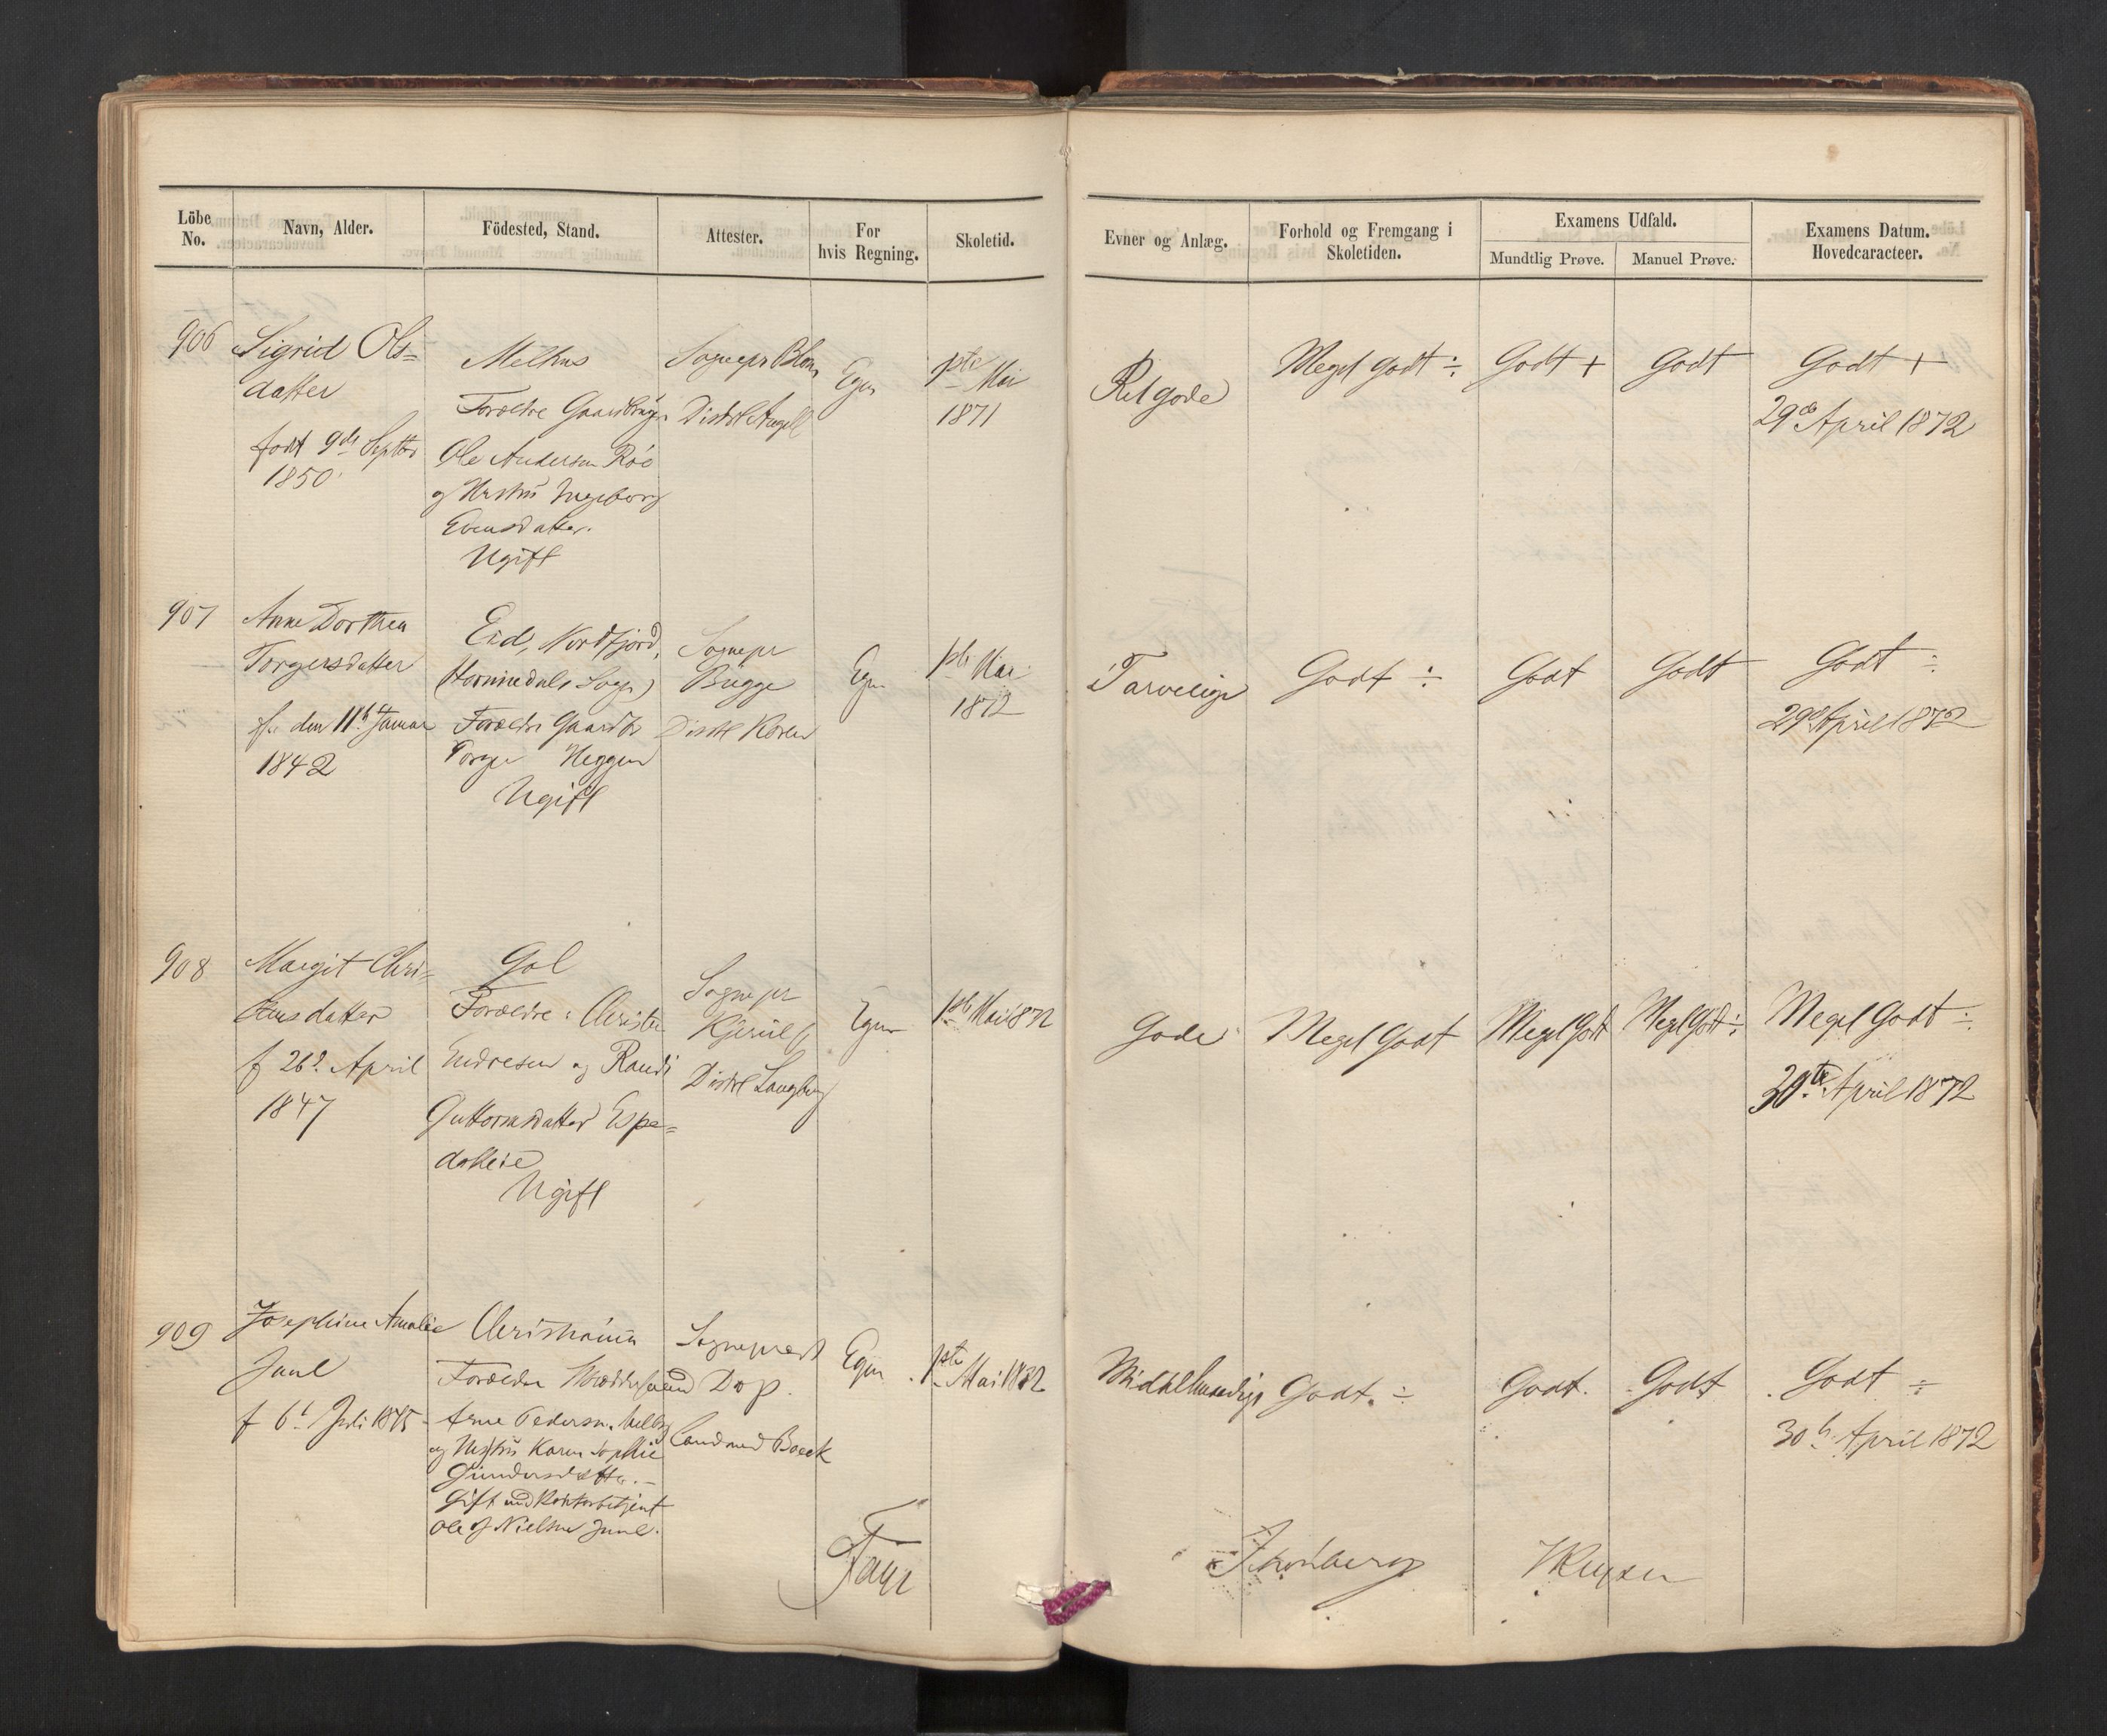 Löbe No.
Navn, Alder.
Födested, Stand.
Attester.
For hvis Regning.
Skoletid.
Evner og Anlæg.
Forhold og Fremgang i Skoletiden.
Examens Udfald.
Mundtlig Prøve.
Manuel Prøve.
Examens Datum.
Hovedcaracteer.
906
Sigrid Ols=
datter
født 9de Septbr
1850
Melhus
Forældre Gaardbruger
Ole Andersen Röe
og Hustru Ingeborg
Evensdatter.
Ugift
Sognepr Blom
Distrl Angell
Egen
1ste Mai
1871
Ret gode
Meget godt ÷
Godt +
Godt
Godt +
29de April 1872
907
Anne Dorthea
Torgersdatter
f. den 11te Januar
1842
Eid, Nordfjord,
(Hornindals Sogn)
Forældre Gaardbr
Torger Heggen
Ugift
Sognepr
Bugge
Distrl Koren
Egen
1ste Mai
1872
Tarvelige
Godt ÷
Godt
Godt
Godt ÷
29de April 1872
908
Margit Chri=
stensdatter
f 26de April
1847
Gol
Forældre: Christen
Endresen og Randi
Guttormsdatter Espe=
dokken
Ugift
Sognepr
Kjerulf
Distrl Langberg
Egen
1ste Mai 1872
Gode
Meget Godt
Meget Godt
Meget Godt ÷
Meget Godt ÷
30te April 1872
909
Josephine Amalie
Juul
f 6t Juli 1845
Christiania
Forældre
Arne Pedersen
og Hustru Karen Sophie
Gundersdatter.
Gift med
Ole Nielsen Juul.
Sogneprest
Dop.
Cand med Boeck
Egen
1ste Mai 1872
Middelmaadige
Godt. ÷
Godt.
Godt
Godt ÷
30te April 1872
Faye
Thonberg